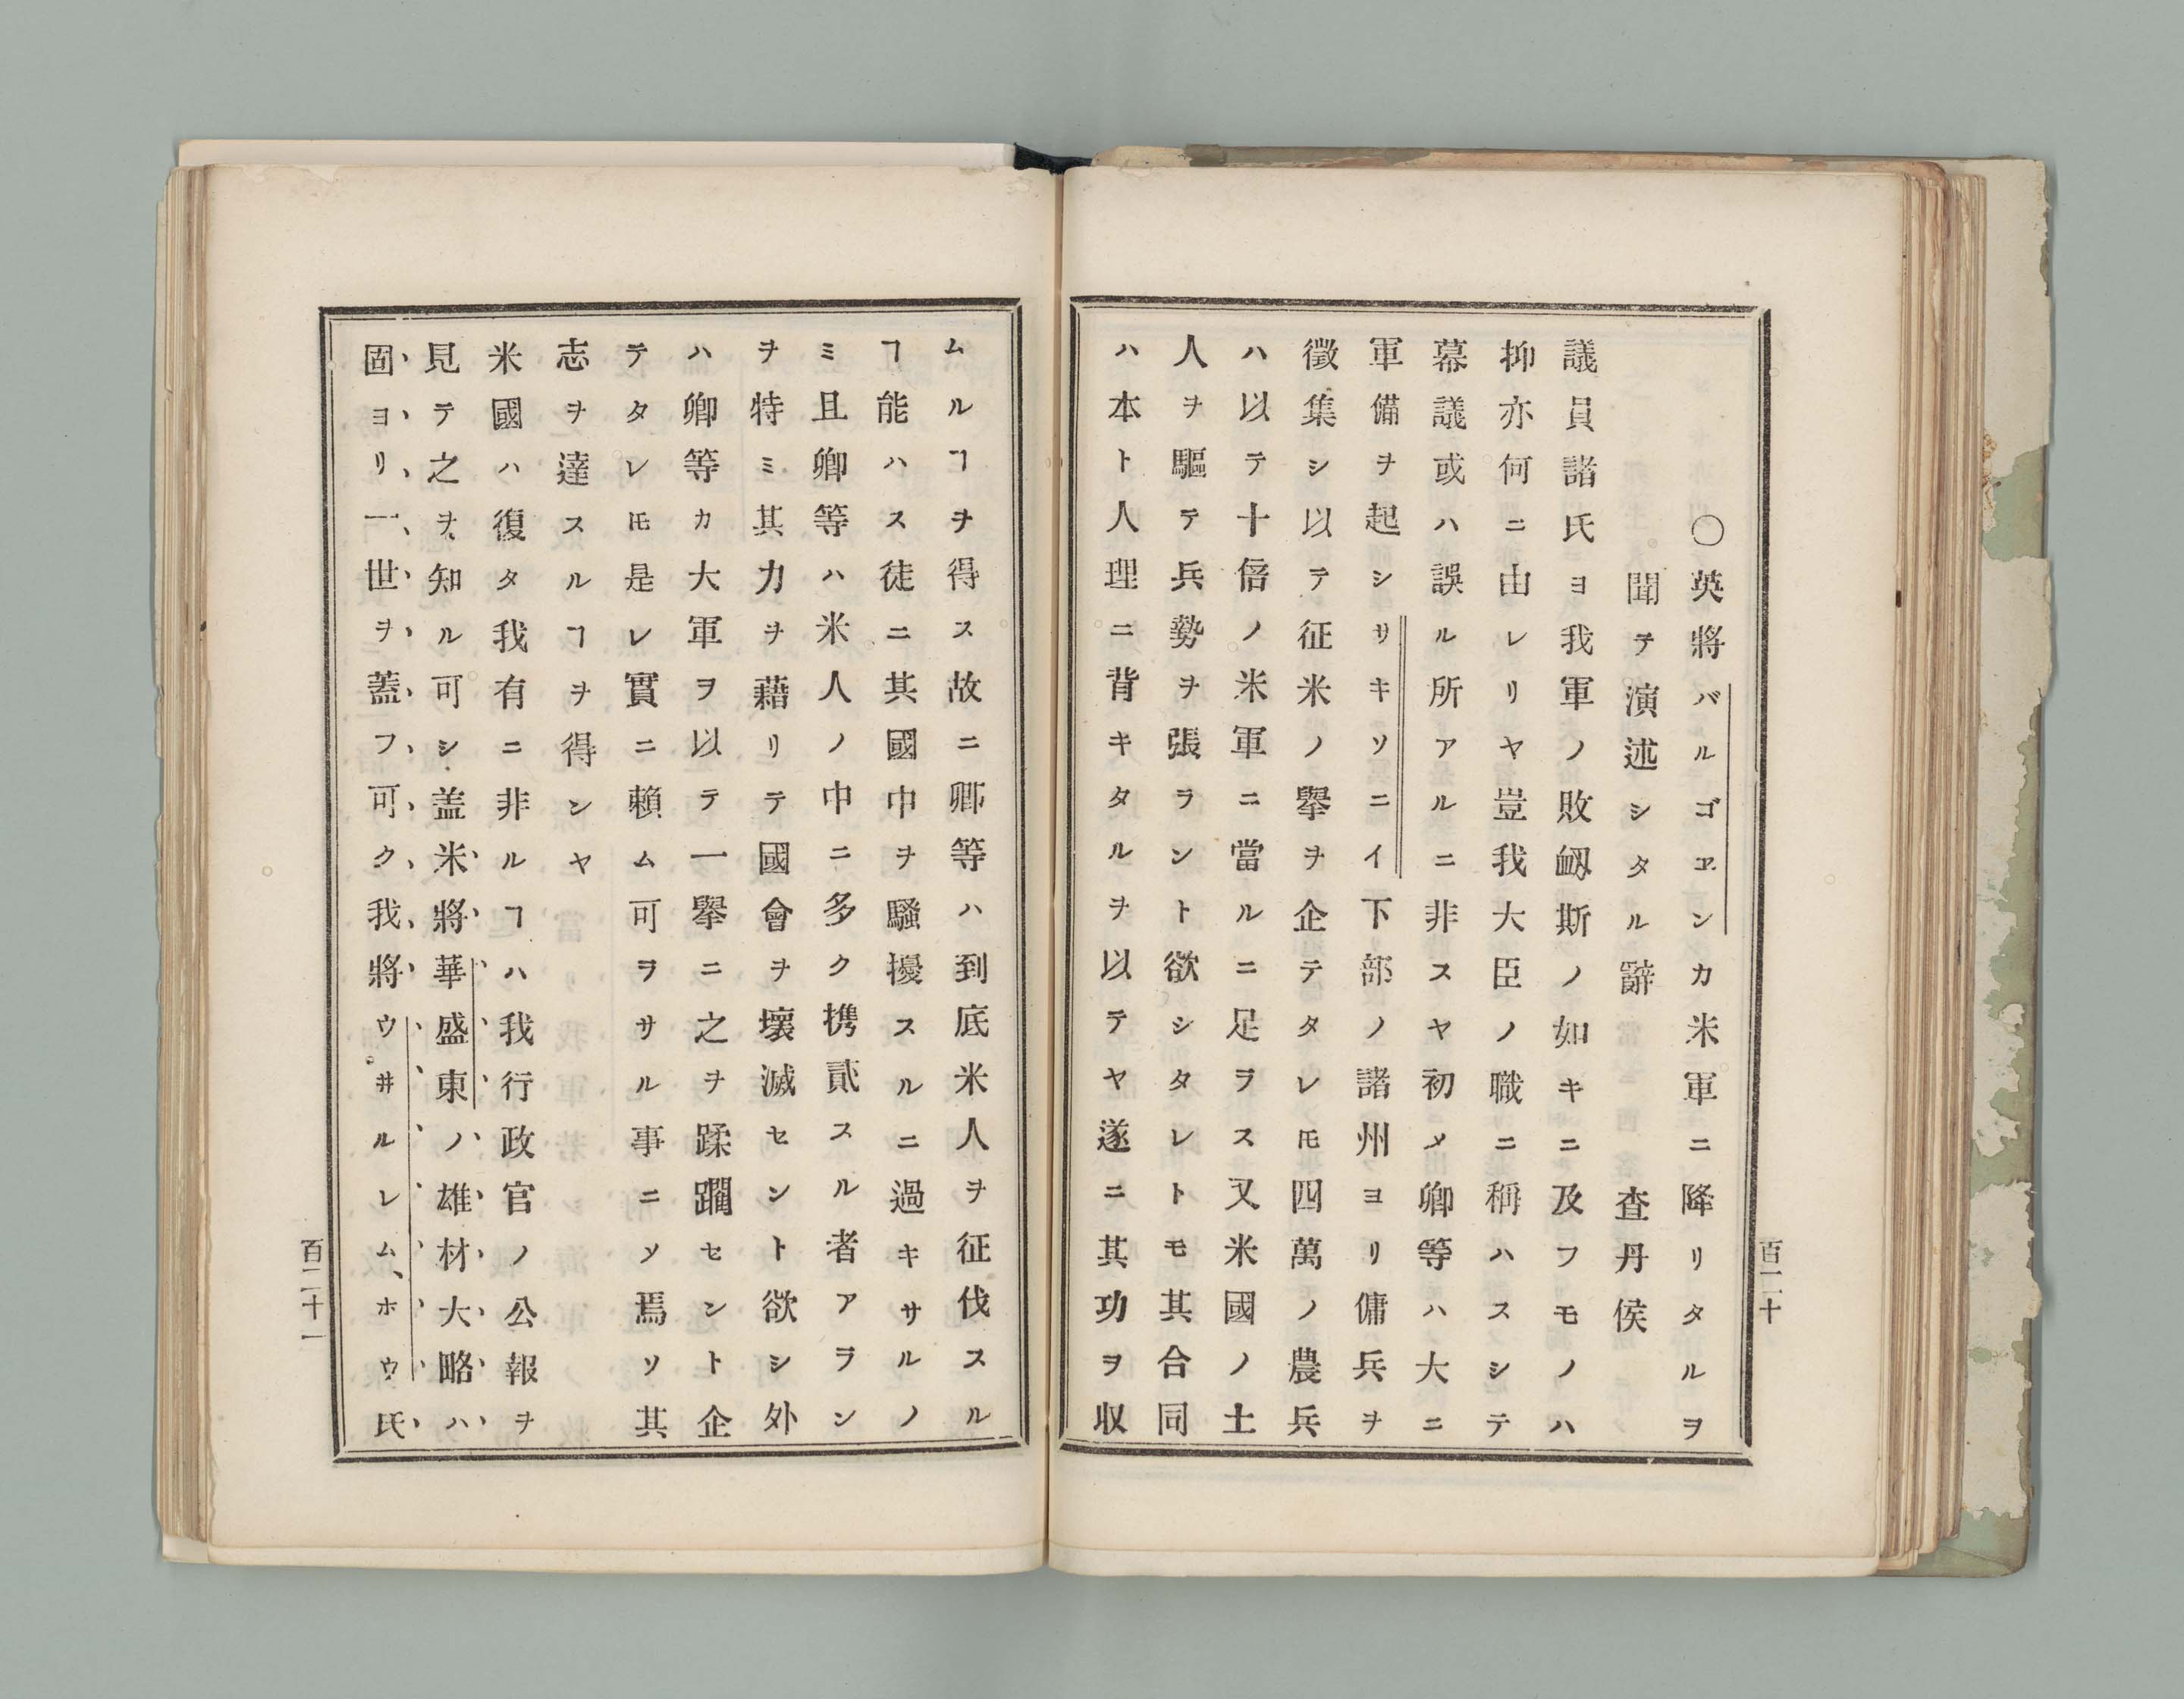 〇英將バルゴヱンカ米軍ニ降リタルヲ
聞テ演述シタル辭　査丹侯
議員諸氏ヨ我軍ノ敗衂斯ノ如キニ及フモノハ
抑亦何ニ由レリヤ豈我大臣ノ職ニ稱ハスシテ
幕議或ハ誤ル所アルニ非スヤ初メ卿等ハ大ニ
軍備ヲ起シサキソニイ下部ノ諸州ヨリ傭兵ヲ
徵集シ以テ征米ノ擧ヲ企テタレ𪜈四萬ノ農兵
ハ以テ十倍ノ米軍ニ當ルニ足ラス又米國ノ土
人ヲ驅テ兵勢ヲ張ラント欲シタレトモ其合同
ハ本ト人理ニ背キタルヲ以テヤ遂ニ其功ヲ収
百二十
ムルヿヲ得ス故ニ卿等ハ到底米人ヲ征伐スル
ヿ能ハス徒ニ其國中ヲ騷擾スルニ過キサルノ
ミ且卿等ハ米人ノ中ニ多ク携貳スル者アラン
ヲ特ミ其力ヲ藉リテ國會ヲ壞滅セント欲シ外
ハ卿等カ大軍ヲ以テ一擧ニ之ヲ蹂躙セント企
テタレ𪜈是レ實ニ賴ム可ヲサル事ニメ焉ソ其
志ヲ達スルヿヲ得ンヤ
米國ハ復タ我有ニ非ルヿハ我行政官ノ公報ヲ
見テ之ヲ知ル可シ盖米將華盛東ノ雄材大略ハ
固ヨリ一世ヲ蓋フ可ク我將ウ井ルレム、ホウ氏
百二十一